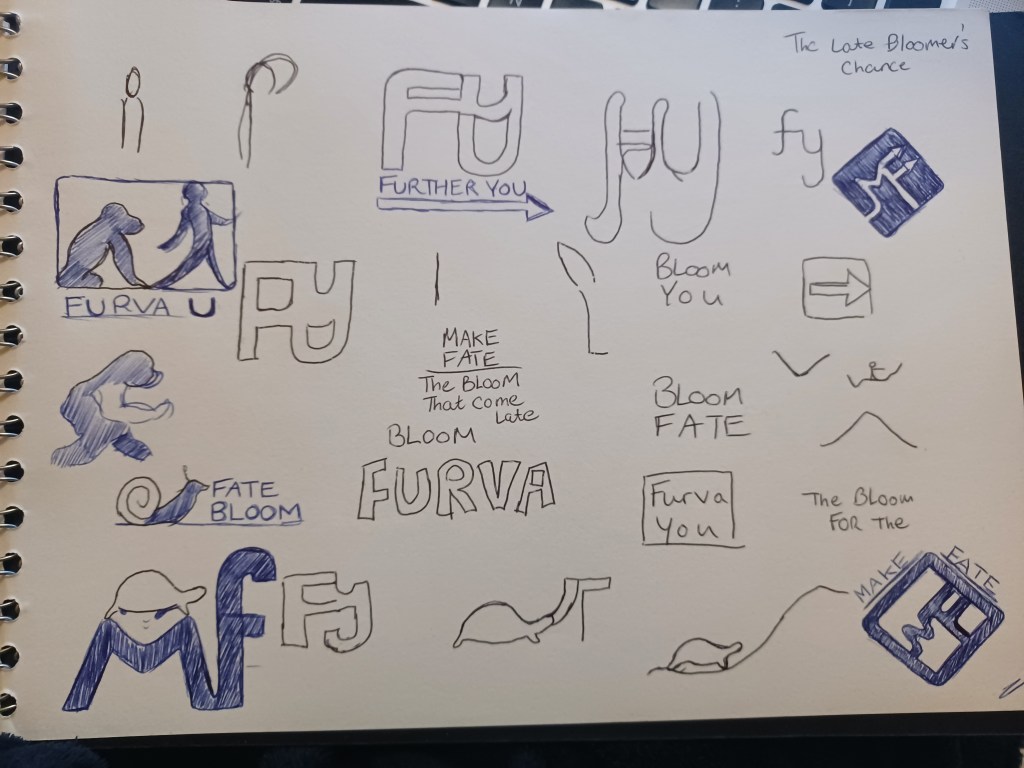 The Late Bloomer's
Chance
Fy
FURTHER YOU
fy
fy
MF
FURVA U
Fy
BLOOM
YOU
MAKE
FATE
The BLOOM
That Come
Late
BLOOM
BLOOM
FATE
FATE
BLOOM
FURVA
Furva
You
The BLOOM
FOR The
Mf
Fy
MAKE FATE
MF